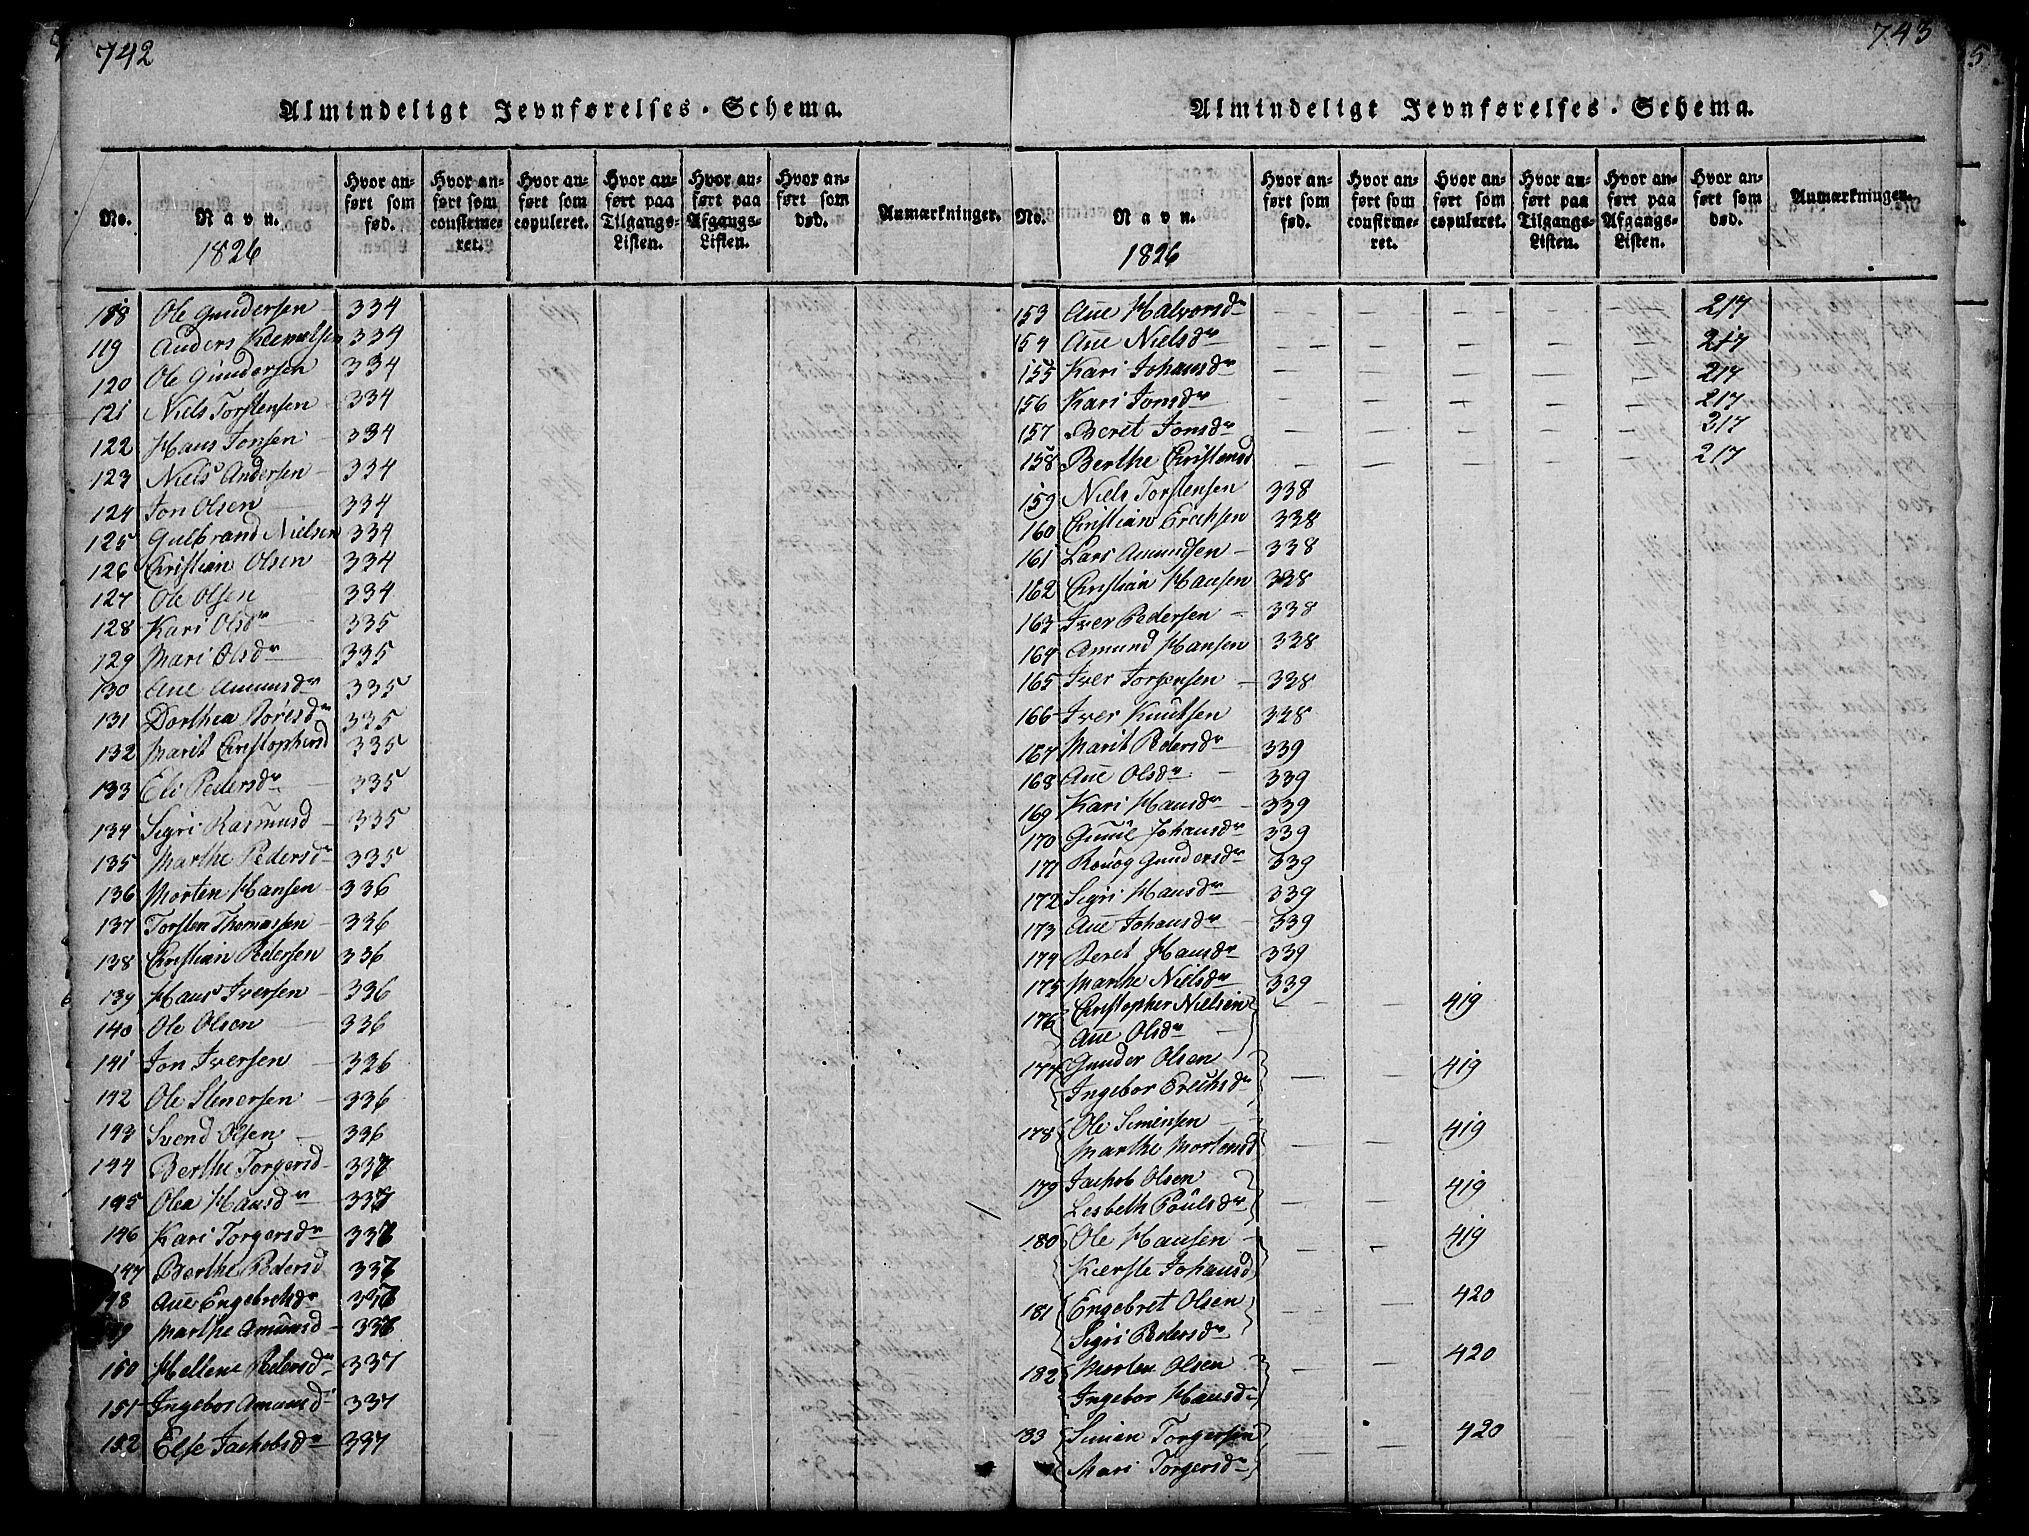 742
Almindeligt Jevnførelses-Schema.
No.
Navn.
Hvor anført som fød.
Hvor anført som confirmeret.
Hvor anført som copuleret.
Hvor anført paa Tilgangs-Listen.
Hvor anført paa Afgangs-Listen.
Hvor anført som død.
Anmærkninger.
1826
118 Ole Gundersen 334
119 Anders Clemetsen 334
120 Ole Gundersen 334
121 Niels Torstensen 334
122 Hans Jonsen 334
123 Niels Andersen 334
124 Jon Olsen 334
125 Gulbrand Nielsen 334
126 Christian Olsen 334
127 Ole Olsen 334
128 Kari Olsdr 335
129 Mari Olsdr 335
130 Ane Amundsdr 335
131 Dorthea Toresdr 335
132 Marit Christophersd 335
133 Eli Pedersdr 335
134 Sigri Rasmusd 335
135 Marthe Pedersdr 335
136 Morten Hansen 336
137 Torsten Thomassen 336
138 Christian Pedersen 336
139 Hans Iversen 336
140 Ole Olsen 336
141 Jon Iversen 336
142 Ole Stenersen 336
143 Svend Olsen 336
144 Berthe Torgersd 337
145 Olea Hansdr 337
146 Kari Torgersdr 337
147 Berthe Pedersd 337
148 Ane Engebretsdr 337
149 Marthe Amunsd 337
150 Hellene Pedersdr 337
151 Ingebor Amunsd 337
152 Else Jachobsdr 337
743
Almindeligt Jevnførelses-Schema.
No.
Navn.
Hvor anført som fød.
Hvor anført som confirmeret.
Hvor anført som copuleret.
Hvor anført paa Tilgangs-Listen.
Hvor anført paa Afgangs-Listen.
Hvor anført som død.
Anmærkninger.
1826
153 Ane Halvorsdr — — — — — 217
154 Ane Nielsdr — — — — — 217
155 Kari Johansdr — — — — — 217
156 Kari Jonsdr — — — — — 217
157 Beret Jonsdr — — — — — 217
158 Berthe Christensd — — — — — 217
159 Niels Torstensen 338
160 Christian Erichsen 338
161 Lars Amundsen 338
162 Christian Hansen 338
163 Iver Pedersen 338
164 Amund Hansen 338
165 Iver Torgersen 338
166 Iver Knutsen 338
167 Marit Pedersdr 339
168 Ane Olsdr 339
169 Kari Hansdr 339
170 Gunil Johansdr 339
171 Rønøg Gundersdr 339
172 Sigri Hansdr 339
173 Ane Johansdr 339
174 Beret Hansdr 339
175 Marthe Nielsdr 339
176 Christopher Nielsen — — 419
Ane Olsdr
177 Gunder Olsen — — 419
Ingebor Erichsdr
178 Ole Simensen — — 419
Marthe Mortensd
179 Jachob Olsen — — 419
Lesbeth Poulsdr
180 Ole Hansen — — 419
Kierste Johansd
181 Engebret Olsen — — 420
Sigri Pedersdr
182 Morten Olsen — — 420
Ingebor Hansdr
183 Simen Torgersen — — 420
Mari Torgersdr